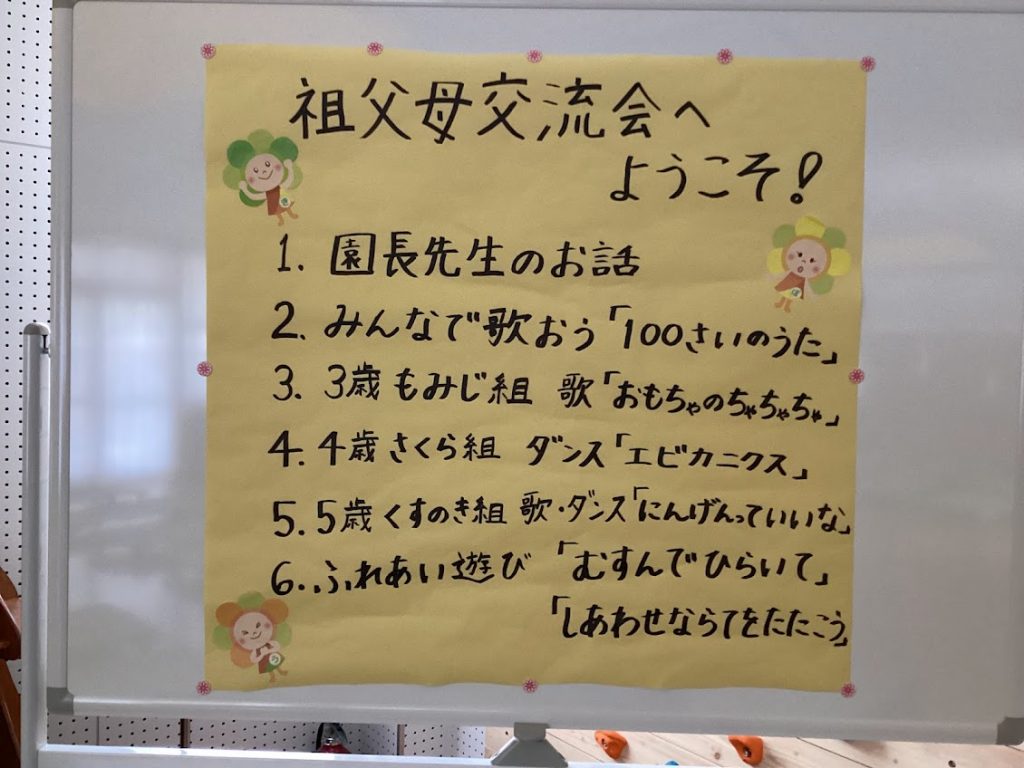 祖父母交流会へ
ようこそ!
1. 園長先生のお話
2. みんなで歌おう「100さいのうた」
3. 3歳 もみじ組 歌「おもちゃのちゃちゃちゃ」
4. 4歳 さくら組 ダンス「エビカニクス」
5. 5歳 くすのき組 歌・ダンス「にんげんっていいな」
6. ふれあい遊び 「むすんでひらいて」
「しあわせならてをたたこう」